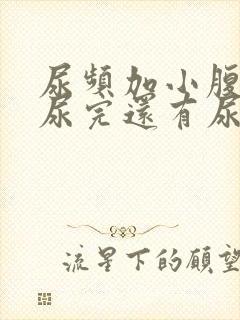 尿頻加小腹
尿完還有尿
流星下的願望